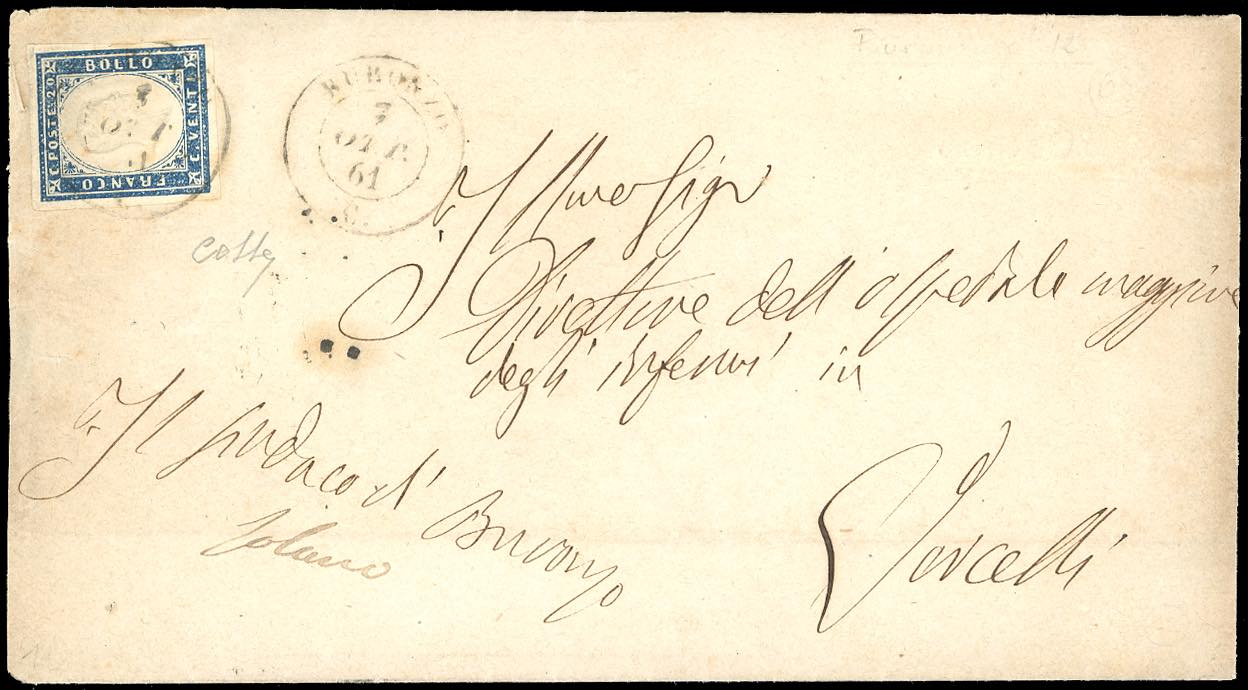 BOLLO
C. POSTE 20
C. VENTI
FRANCO
BURONZO
7
OTT.
61
Illmo Sigr
Direttore dell'ospedale maggiore
degli infermi in
Vercelli
Il sindaco di
Buronzo